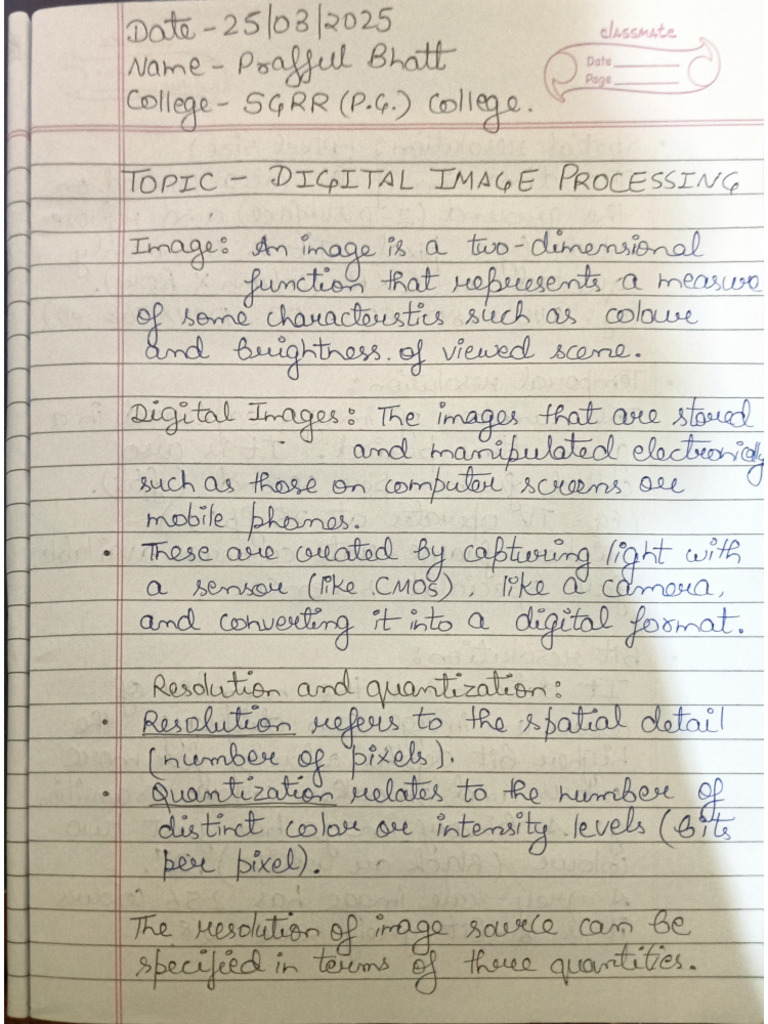 Date - 25/03/2025
classmate
Name - Prafful Bhatt
Date
Page
College - SGRR (P.G.) College.
TOPIC - DIGITAL IMAGE PROCESSING
Image: An image is a two-dimensional
function that represents a measure
of some characterstics such as colour
and brightness. of viewed scene.
Digital Images: The images that are stored
and manipulated electronically
such as those on computer screens or
mobile phones.
• These are created by capturing light with
a sensor (like CMOS), like a camera,
and converting it into a digital format.
Resolution and quantization:
• Resolution refers to the spatial detail
(number of pixels).
• Quantization relates to the number of
distinct color or intensity levels (Bits
per pixel).
The resolution of image source can be
specified in terms of three quantities.